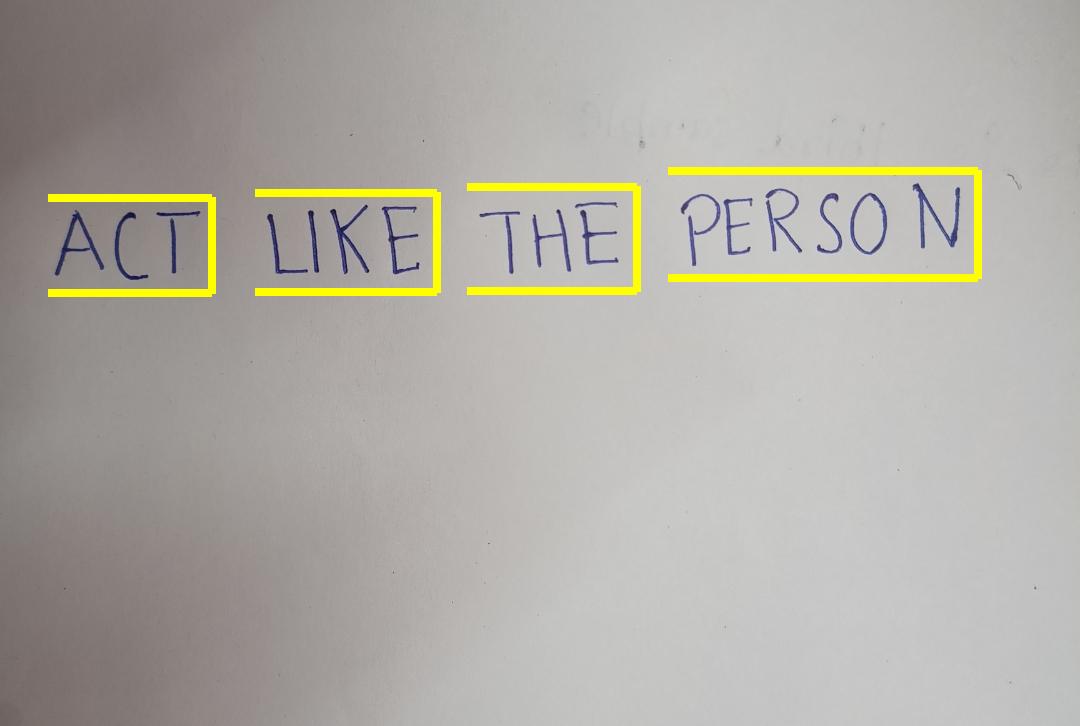 ACT LIKE THE PERSON